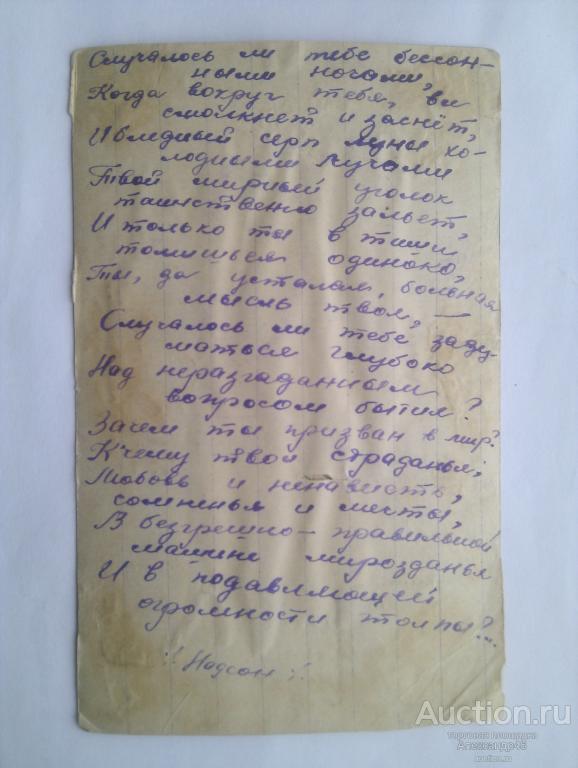 Случалось ли тебе бессон-
ными ночами,
Когда вокруг тебя, все
смолкнет и заснёт,
И бледный серп луны хо-
лодными лучами
Твой мирный уголок
таинственно зальет,
И только ты в тиши
томишься одиноко,
Ты, да усталая, больная
мысль твоя, —
Случалось ли тебе заду-
маться глубоко
Над неразгаданным
вопросом бытия?
Зачем ты призван в мир?
К чему твои страданья,
Любовь и ненависть,
сомненья и мечты,
В безгрешно-правильной
машине мирозданья
И в подавляющей
огромности толпы?...
!! Надсон !!
Auction.ru
торговая площадка
Александр46
auction.ru